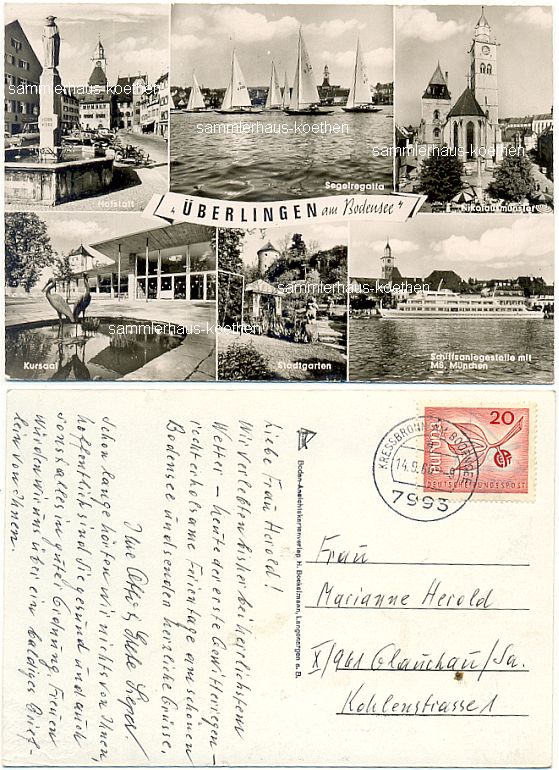 sammlerhaus-koethen
sammlerhaus-koethen
sammlerhaus-koethen
Hofstatt
Segelregatta
Nikolausmünster
ÜBERLINGEN am Bodensee
sammlerhaus-koethen
sammlerhaus-koethen
sammlerhaus-koethen
Kursaal
Stadtgarten
Schiffsanlegestelle mit
MS. München
Liebe Frau Herold!
Wir verlebten bisher bei herrlichstem
Wetter – heute der erste Gewitterregen –
recht erholsame Ferientage am schönen
Bodensee und senden herzliche Grüsse,
Ihre
Schon lange hörten wir nichts von Ihnen,
hoffentlich sind Sie gesund und auch
sonst alles in guter Ordnung. Freuen
würden wir uns über ein baldiges Brief-
lein von Ihnen.
Boden-Ansichtskartenverlag H. Bockelmann, Langenargen a. B.
KRESSBRONN AM BODENSEE
14.9.65
7993
20
CEPT
DEUTSCHE BUNDESPOST
Frau
Marianne Herold
X/961 Glauchau/Sa.
Kohlenstrasse 1